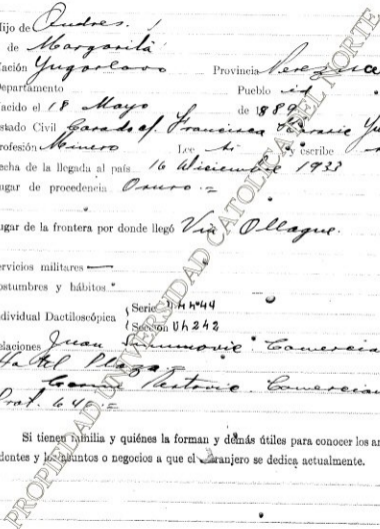 Hijo de Andres.
y de Margarita
Nación Yugoslavo Provincia
Departamento Pueblo id
Nacido el 18 Mayo de 1889
Estado Civil Casado c/. Francisca
Profesión Minero Lee si escribe
Fecha de la llegada al país 16 Diciembre 1933
Lugar de procedencia Oruro.=
Lugar de la frontera por donde llegó Via Ollague.
Servicios militares —
Costumbres y hábitos "
Individual Dactiloscópica { Serie 44444
Sección U4242
Relaciones Juan Comercian
Hotel Plaza=
Comercian
Prat. 640.=
Si tienen familia y quiénes la forman y demás útiles para conocer los an
dentes y los asuntos o negocios a que el extranjero se dedica actualmente.
PROPIEDAD UNIVERSIDAD CATOLICA DEL NORTE